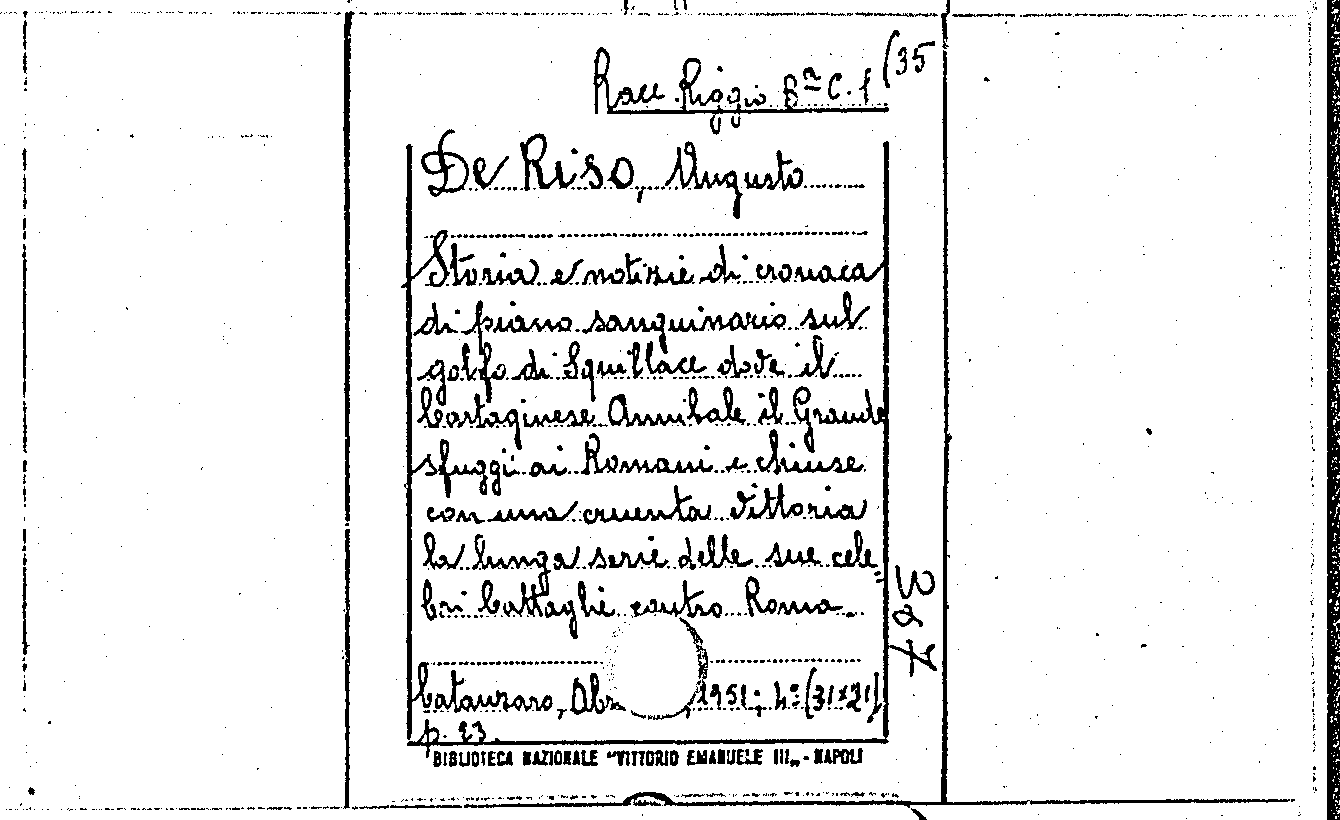 Racc. Riggio Bª C. 1 (35
De Riso, Augusto
Storia e notizie di cronaca
di piano sanguinario sul
golfo di Squillace dove il
Cartaginese Annibale il Grande
sfuggi ai Romani e chiuse
con una cruenta vittoria
la lunga serie delle sue cele=
bri battaglie contro Roma.
Catanzaro, Abr , 1951; 4º (31x21)
p. 23.
BIBLIOTECA NAZIONALE "VITTORIO EMANUELE III„ - NAPOLI
367